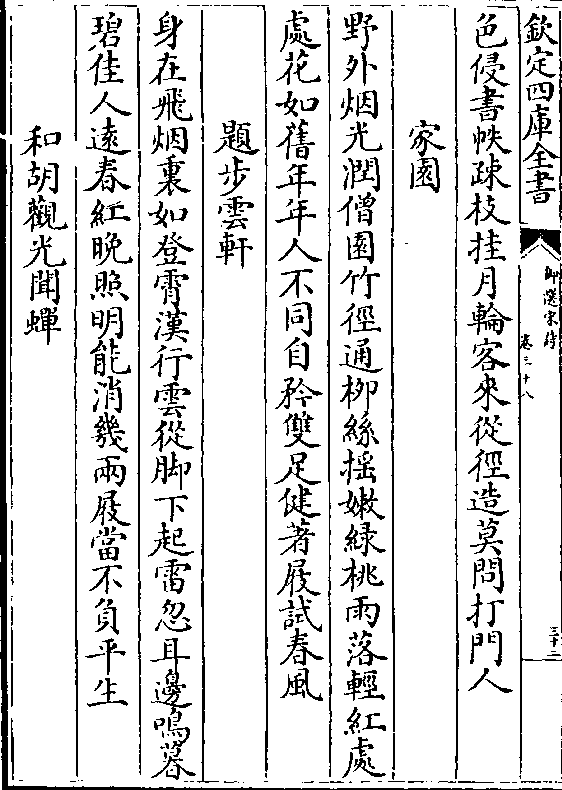 欽定四庫全書
御選宋詩
卷三十八
三十二
色侵書帙疎枝挂月輪客來從徑造莫問打門人
家園
野外烟光潤僧園竹徑通栁絲揺嫩緑桃雨落輕紅處
處花如舊年年人不同自矜雙足健著屐試春風
題步雲軒
身在飛烟裏如登霄漢行雲從脚下起雷忽耳邊鳴暮
碧佳人逺春紅晩照明能消幾兩屐當不負平生
和胡觀光聞蟬